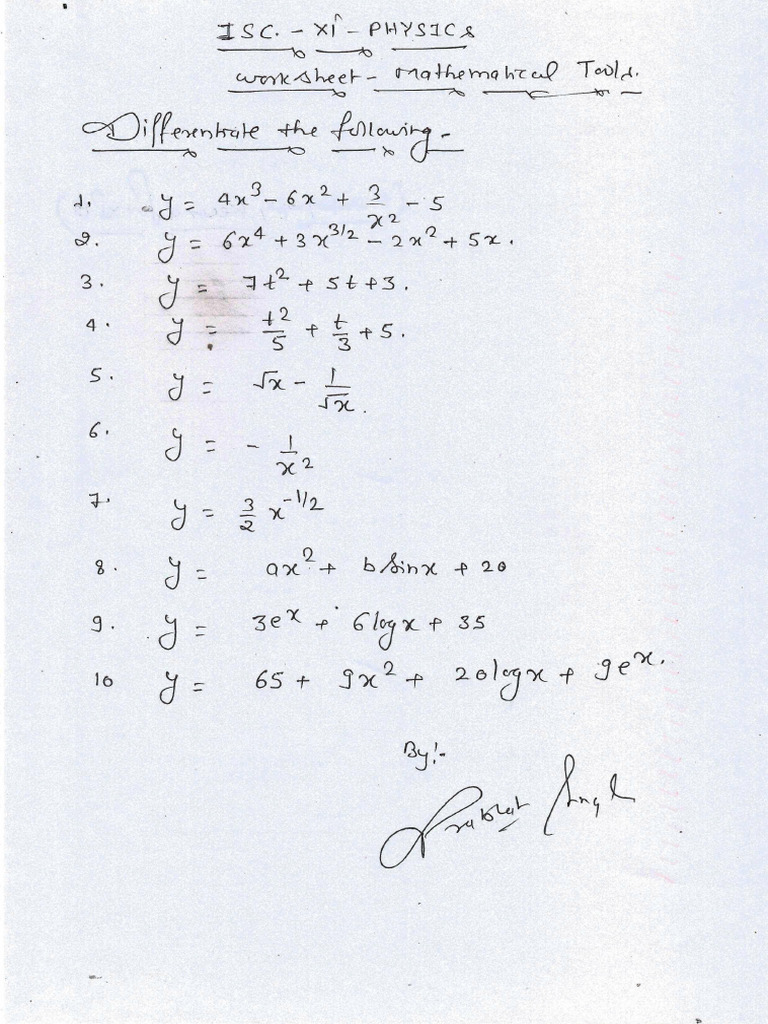 ISC. - XI - PHYSICS
Worksheet - Mathematical Tools.
Differentiate the following -
1. y = 4x³ - 6x² + 3/x² - 5
2. y = 6x⁴ + 3x^3/2 - 2x² + 5x.
3. y = 7t² + 5t + 3.
4. y = t²/5 + t/3 + 5.
5. y = √x - 1/√x.
6. y = - 1/x²
7. y = 3/2 x^-1/2
8. y = ax² + b sinx + 20
9. y = 3e^x + 6logx + 35
10 y = 65 + 9x² + 20logx + 9e^x.
By:-
Prabhat Singh